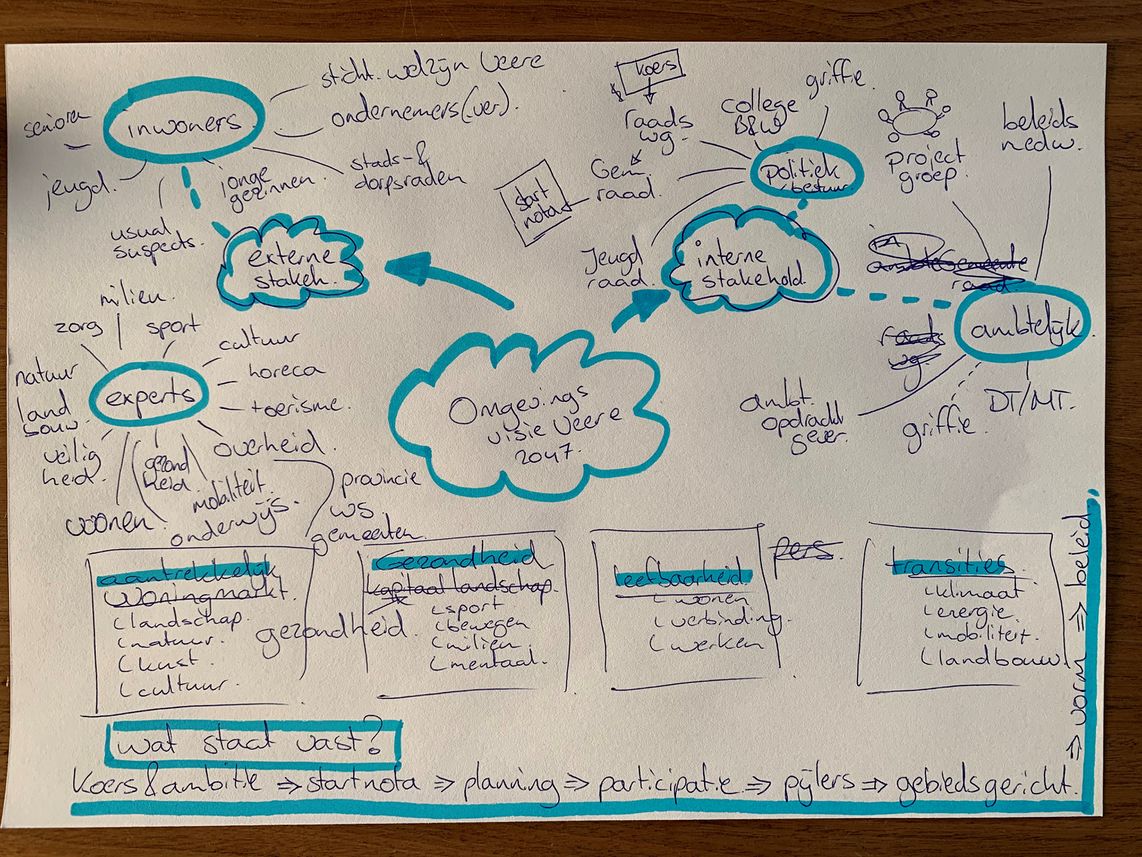 inwoners
senioren
jeugd.
usual
suspects.
jonge
gezinnen.
sticht. welzijn Veere
ondernemers(ver).
stads-&
dorpsraden
externe
stakeh.
koers
raads
wg.
Gem.
raad.
start
nota
Jeugd
raad.
college
B&W
griffie.
politiek
bestuur
interne
stakehold.
project
groep.
beleids
medw.
gemeente
raad
ambtelijk.
raads
wg.
ambt.
opdracht
gever.
griffie.
DT/MT.
Omgevings
visie Veere
2047.
experts
milieu.
zorg
sport
cultuur
horeca
toerisme.
overheid
provincie
WS
gemeenten.
natuur
land
bouw.
veilig
heid.
wonen.
gezond
heid
mobiliteit.
onderwijs.
aantrekkelijk
woningmarkt.
landschap.
natuur.
kust.
cultuur.
gezondheid.
Gezondheid
kapitaal landschap.
sport
bewegen
milieu.
mentaal.
leefbaarheid.
wonen
verbinding.
werken
pers.
transities.
klimaat
energie
mobiliteit.
landbouw.
wat staat vast?
Koers & ambitie ⇒ startnota ⇒ planning ⇒ participatie ⇒ pijlers ⇒ gebiedsgericht.
⇒ vorm ⇒ beleid